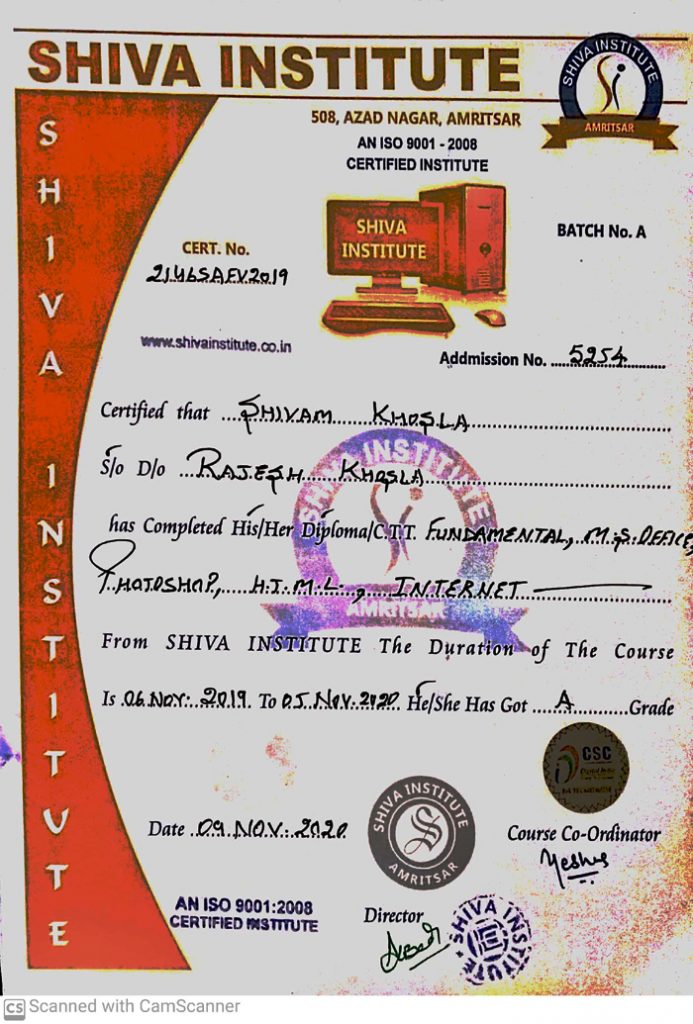 SHIVA INSTITUTE
SHIVA INSTITUTE
AMRITSAR
508, AZAD NAGAR, AMRITSAR
AN ISO 9001 - 2008
CERTIFIED INSTITUTE
SHIVA INSTITUTE
SHIVA
INSTITUTE
BATCH No. A
CERT. No.
2146SAFV2019
www.shivainstitute.co.in
Addmission No. 5254
Certified that SHIVAM KHOSLA
S/o D/o RAJESH KHOSLA
SHIVA INSTITUTE
has Completed His/Her Diploma/C.T.T. FUNDAMENTAL, M.S.OFFICE,
PHOTOSHOP, H.T.M.L., INTERNET
AMRITSAR
From SHIVA INSTITUTE The Duration of The Course
Is 06 NOV. 2019. To 05 NOV. 2020. He/She Has Got A Grade
CSC
Digital India
Date 09 NOV. 2020
SHIVA INSTITUTE
S
AMRITSAR
Course Co-Ordinator
AN ISO 9001:2008
CERTIFIED INSTITUTE
Director
SHIVA INSTITUTE
CS Scanned with CamScanner